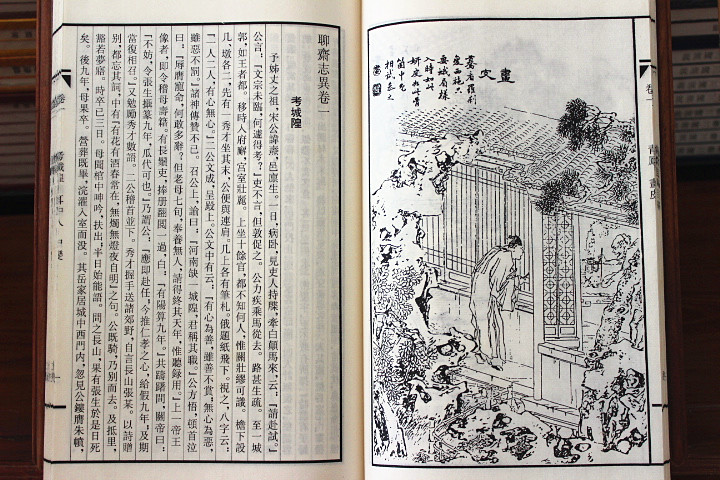 聊齋志異卷一
考城隍
予姊丈之祖,宋公諱燾,邑廩生。一日,病卧,見吏人持牒,牽白顛馬來,云:「請赴試。」
公言:「文宗未臨,何遽得考?」吏不言,但敦促之。公力疾乘馬從去。路甚生疏。至一城
郭,如王者都。移時入府廨,宮室壯麗。上坐十餘官,都不知何人,惟關壯繆可識。檐下設
几、墩各二,先有一秀才坐其末,公便與連肩。几上各有筆札。俄題紙飛下。視之,八字云:
「一人二人,有心無心。」二公文成,呈殿上。公文中有云:「有心為善,雖善不賞;無心為惡,
雖惡不罰。」諸神傳贊不已。召公上,諭曰:「河南缺一城隍,君稱其職。」公方悟,頓首泣
曰:「辱膺寵命,何敢多辭?但老母七旬,奉養無人,請得終其天年,惟聽錄用。」上一帝王
像者,即令稽母壽籍。有長鬚吏,捧册翻閱一過,白:「有陽算九年。」共躊躇間,關帝曰:
「不妨,令張生攝篆九年,瓜代可也。」乃謂公:「應即赴任,今推仁孝之心,給假九年;及期
當復相召。」又勉勵秀才數語。二公稽首並下。秀才握手送諸郊野,自言長山張某。以詩贈
別,都忘其詞,中有「有花有酒春常在,無燭無燈夜自明」之句。公既騎,乃別而去。及抵里,
豁若夢寤。時卒已三日。母聞棺中呻吟,扶出,半日始能語。問之長山,果有張生於是日死
矣。後九年,母果卒。營葬既畢,浣濯入室而没。其岳家居城中西門内,忽見公鏤膺朱幩,
卷一
青鳳 畫皮
畫皮